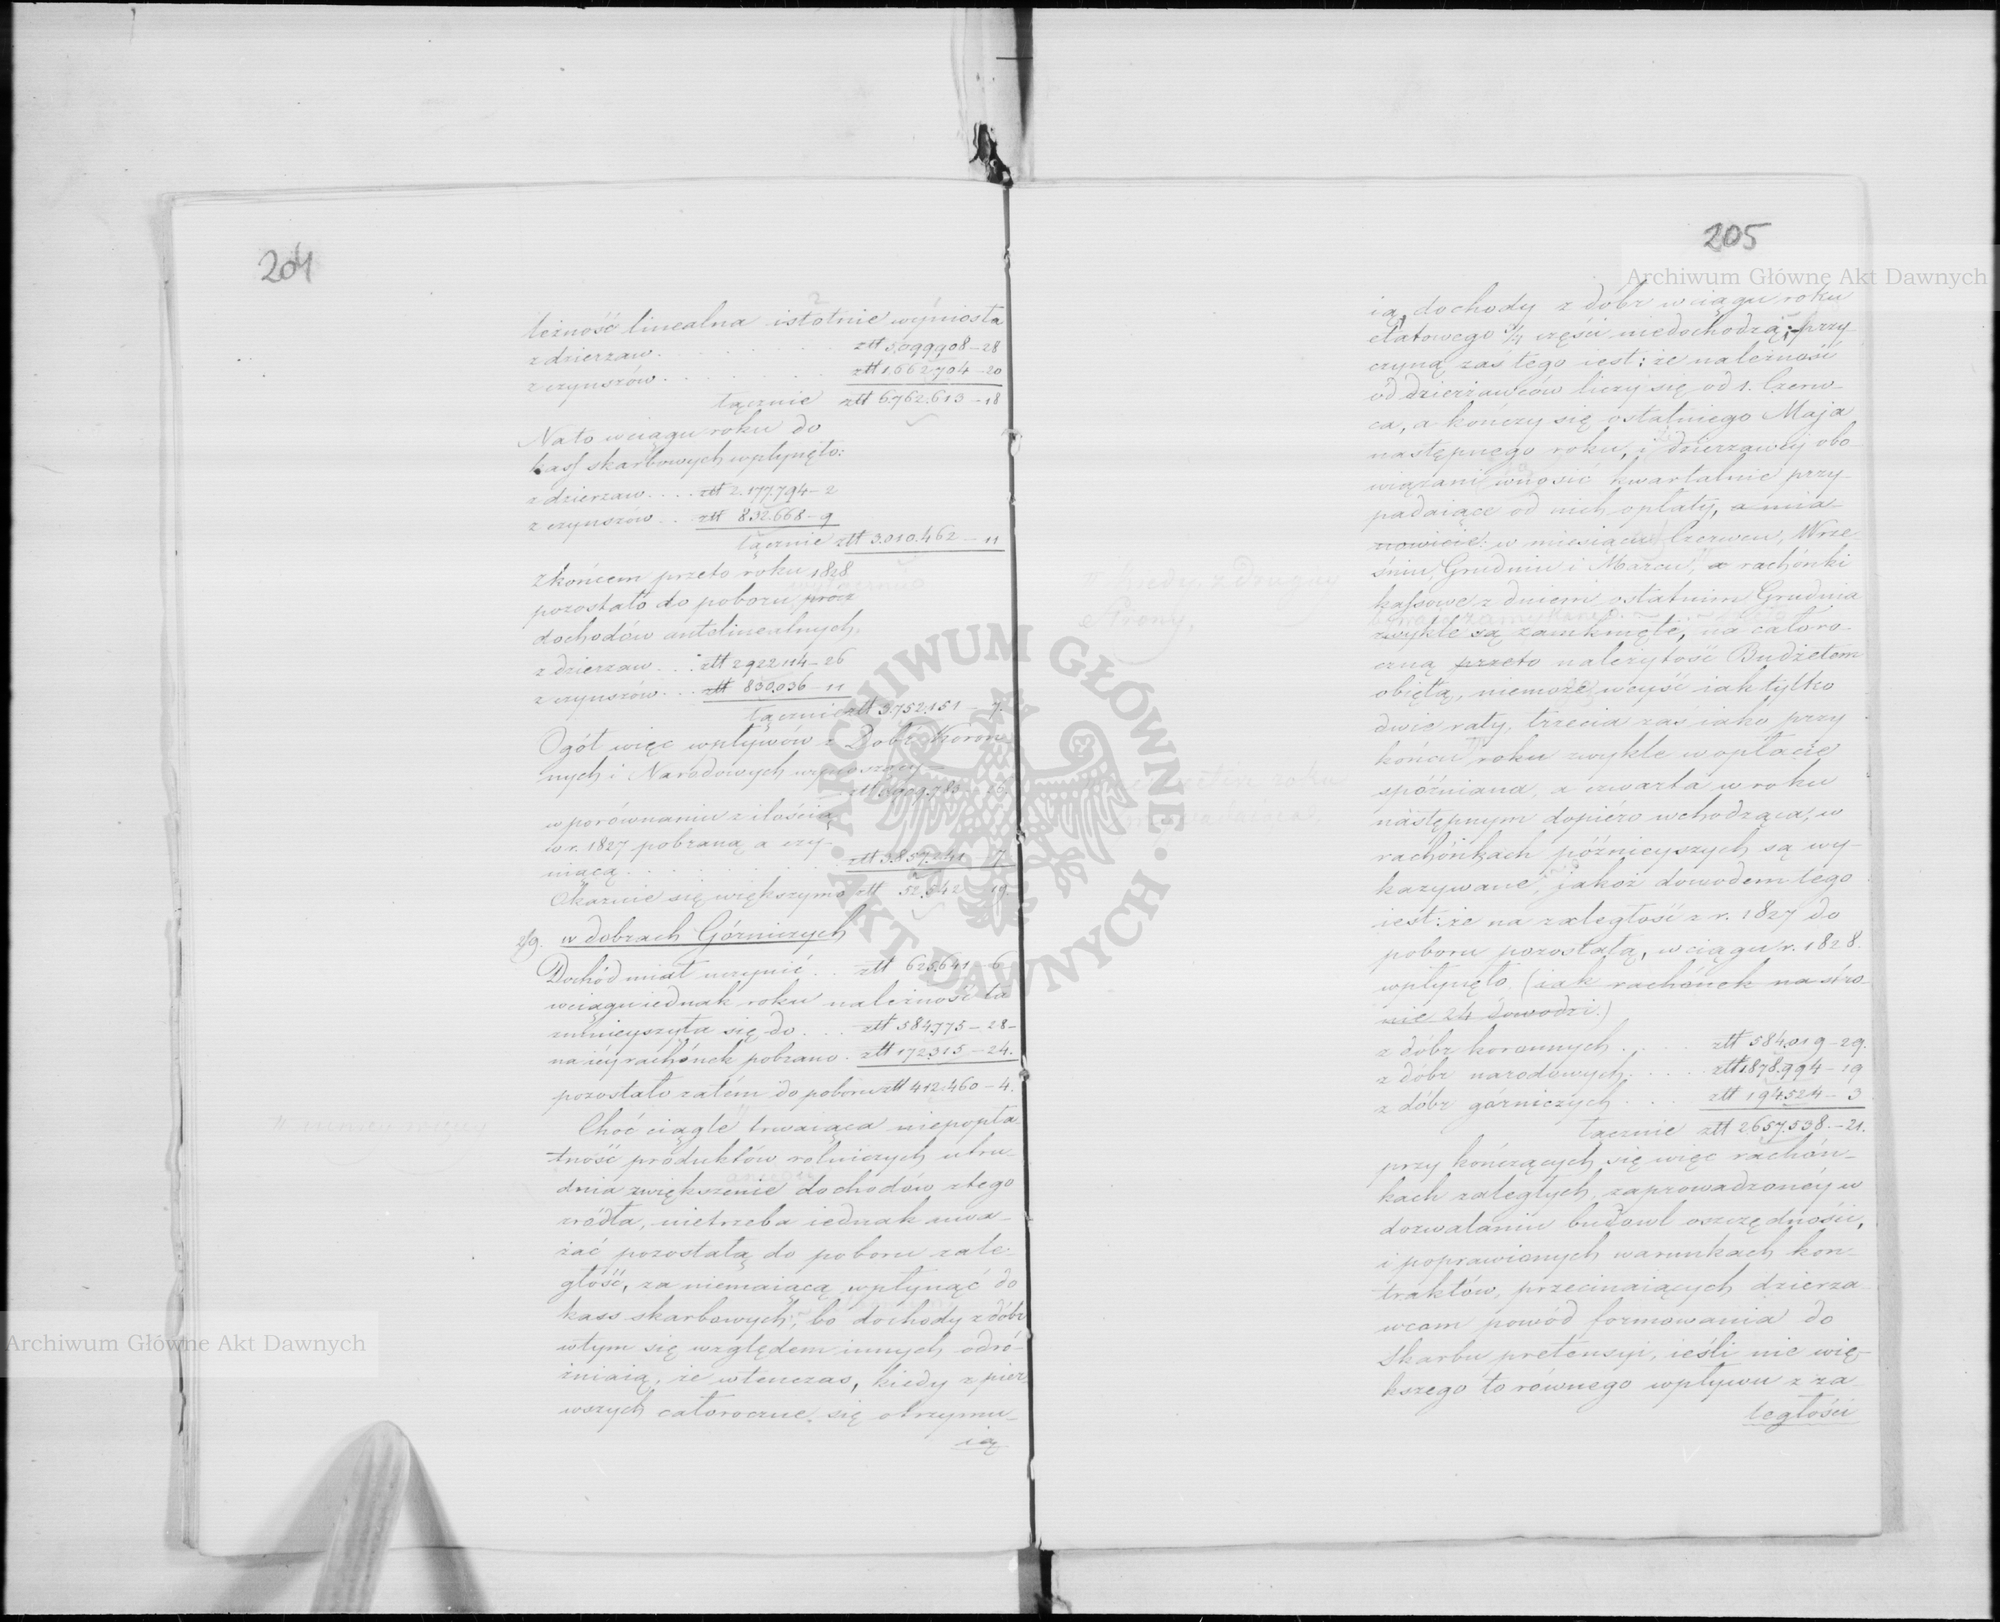 204
leżność linealna istotnie wyniosła
z dzierżaw. złt 5,099,908–28
z czynszów. złt 1,662,704–20
łącznie złt 6,762,613–18
Na to w ciągu roku do
kass skarbowych wpłynęło:
z dzierżaw.... złt 2,177,794–2
z czynszów... złt 832.668–9
łącznie złt 3.010.462–11
z końcem przeto roku 1828
pozostało do poboru prócz
dochodów antelinealnych,
z dzierżaw... złt 2922114–26
z czynszów... złt 830.036–11
łącznie złt 3.752.151–7.
Ogół więc wpływów z Dóbr Koron
nych i Narodowych wynoszący
w porównaniu z ilością
w r. 1827 pobraną a czy-
niącą
okazuie się większym o złt 52,542–19
w dobrach Górniczych
Dochód miał uczynić.. złt 625,641–6
w ciągu iednak roku należność ta
zmnieyszyła się do... złt 584,775–28–
na iéy rachónek pobrano. złt 172315–24.
pozostało zatém do poboru złt 412.460–4.
Choć ciągle trwaiąca niepopła
tność próduktów rolniczych utru
dnia zwiększenie dochódów z tego
zródła, nietrzeba iednak uwa-
żać pozostałą do poboru zale
głość, za niemaiącą wpłynąć do
kass skarbowych, bo dochody z dóbr
w tym się względem innych odró-
żniaią, że wtenczas, kiedy z pier
wszych całoroczne się otrzymu-
ią
205
Archiwum Główne Akt Dawnych
ią, dochody z dóbr w ciągu roku
etatowego ¾ części niedochodzą; przy-
czyną zaś tego iest: że należność
od dzierżawców liczy się od 1. Czerw-
ca, a kończy się ostatniego Maja
następnego roku, i dzierzawcy obo
wiązani wnosić kwartalnie przy-
padaiące od nich opłaty, a mia-
nowicie: w miesiącu Czerwcu, Wrze
śniu, Grudniu i Marcu, a rachónki
kassowe z dniem ostatnim Grudnia
zwykle są zamknięte, na całoro-
czną przeto należytość Budżetem
obiętą, niemoże weyść iak tylko
dwie raty, trzecia zaś iako przy
końcu roku zwykle w opłacie
spóźniana, a czwarta w roku
następnym dopiéro wchodząca, w
rachónkach późnieyszych są wy-
kazywane, jakoż dowodem tego
iest: że na zaległość z r. 1827 do
poboru pozostałą, w ciągu r. 1828.
wpłynęło (iak rachónek na stro-
nie 24 dowodzi.)
z dóbr koronnych.... złt 584,019–29.
z dóbr narodowych.... złt 1878.994–19
z dóbr górniczych... złt 194524–3
łącznie złt 2657.538.–21.
przy kończących się więc rachón-
kach zaległych, zaprowadzonéy w
dozwalaniu budowl oszczędności,
i poprawionych warunkach kon-
traktów, przecinaiących dzierza-
wcom powód formowania do
Skarbu pretensyi, ieśli nie wię-
kszego to równego wpływu z za
ległości
ARCHIWUM GŁÓWNE · AKT DAWNYCH ·
Archiwum Główne Akt Dawnych